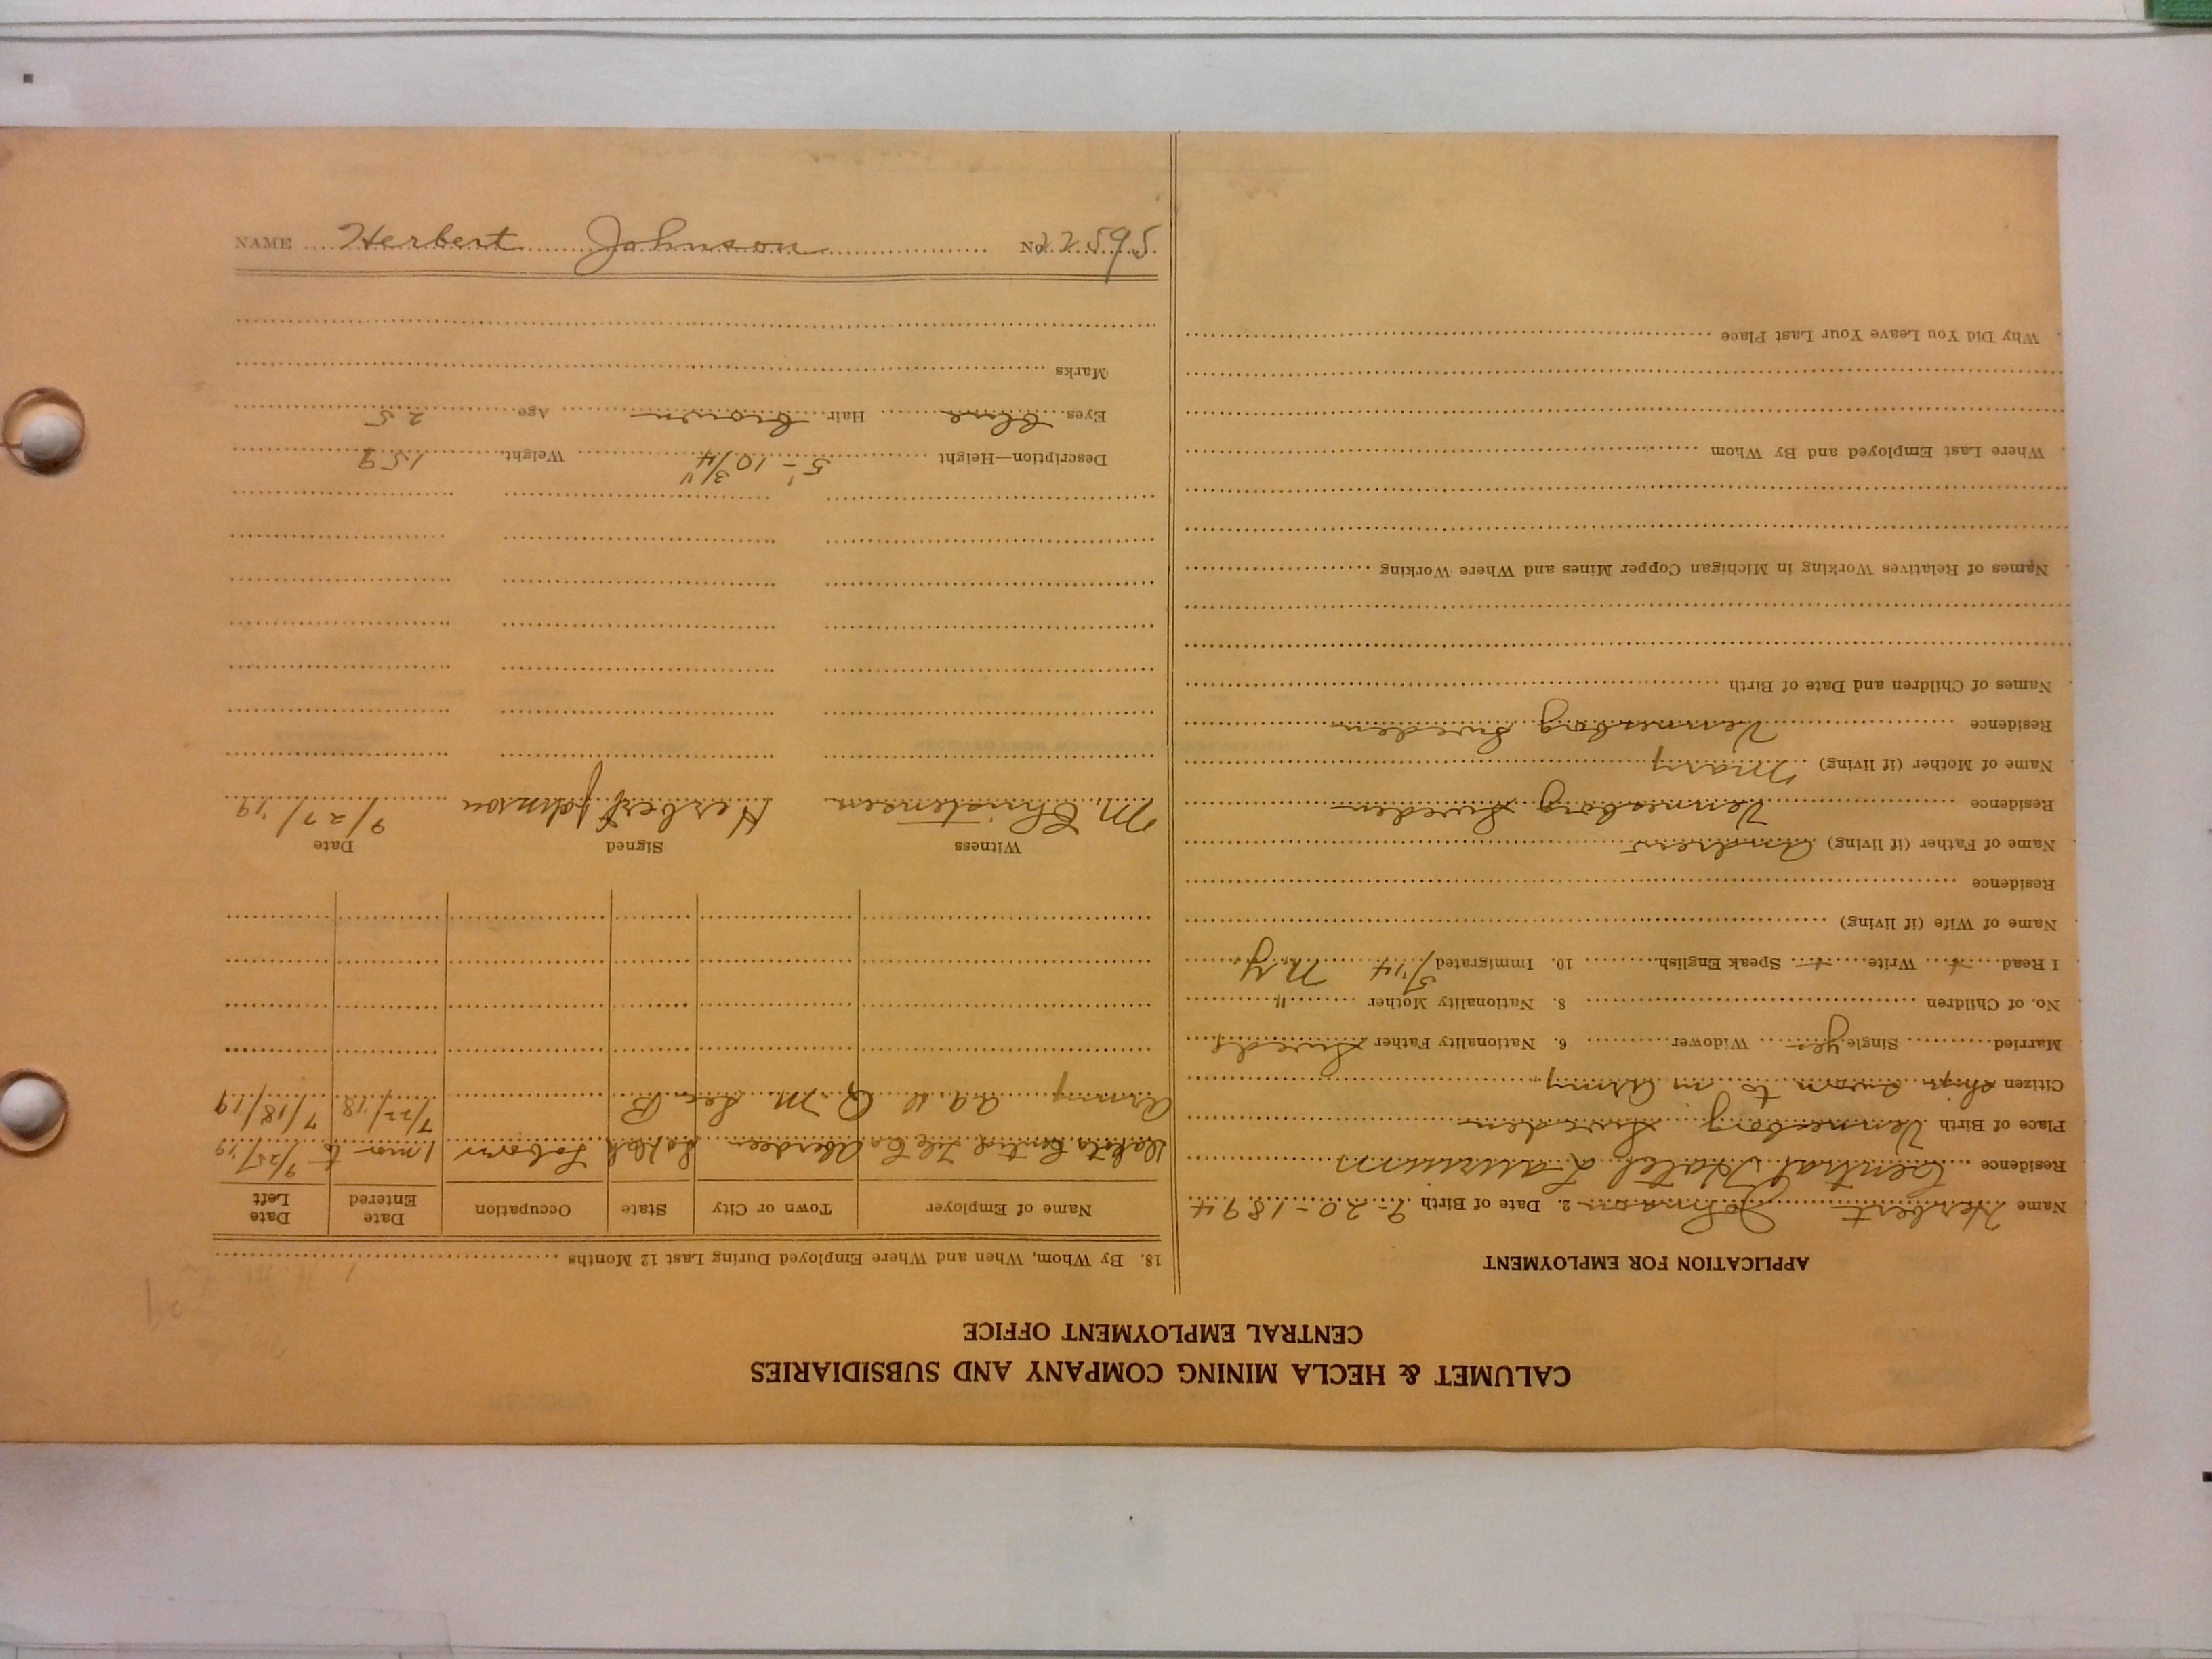 CALUMET & HECLA MINING COMPANY AND SUBSIDIARIES
CENTRAL EMPLOYMENT OFFICE
APPLICATION FOR EMPLOYMENT
Name Herbert Johnson 2. Date of Birth 9-20-1894
Residence Central Hotel Laurium
Place of Birth Vennesborg Sweden
Citizen ship sworn to in Army
Married Single yes Widower 6. Nationality Father Swede
No. of Children 8. Nationality Mother "
I Read + Write + Speak English 10. Immigrated 5/14 N.Y.
Name of Wife (if living)
Residence
Name of Father (if living) Andrew
Residence Vennesborg Sweden
Name of Mother (if living) Mary
Residence Vennesborg Sweden
Names of Children and Date of Birth
Names of Relatives Working in Michigan Copper Mines and Where Working
Where Last Employed and By Whom
Why Did You Leave Your Last Place
18. By Whom, When and Where Employed During Last 12 Months
Name of Employer Town or City State Occupation Date Entered Date Left
Dakota Central Tel Co Aberdeen So Dak Laborer 1 mon to 9/25/19
Army Q. M. 7/22/18 7/18/19
Witness Signed Date
M. Christensen Herbert Johnson 9/27/19
Description—Height 5'-10 3/4" Weight 159
Eyes blue Hair brown Age 25
Marks
NAME Herbert Johnson No. 22595